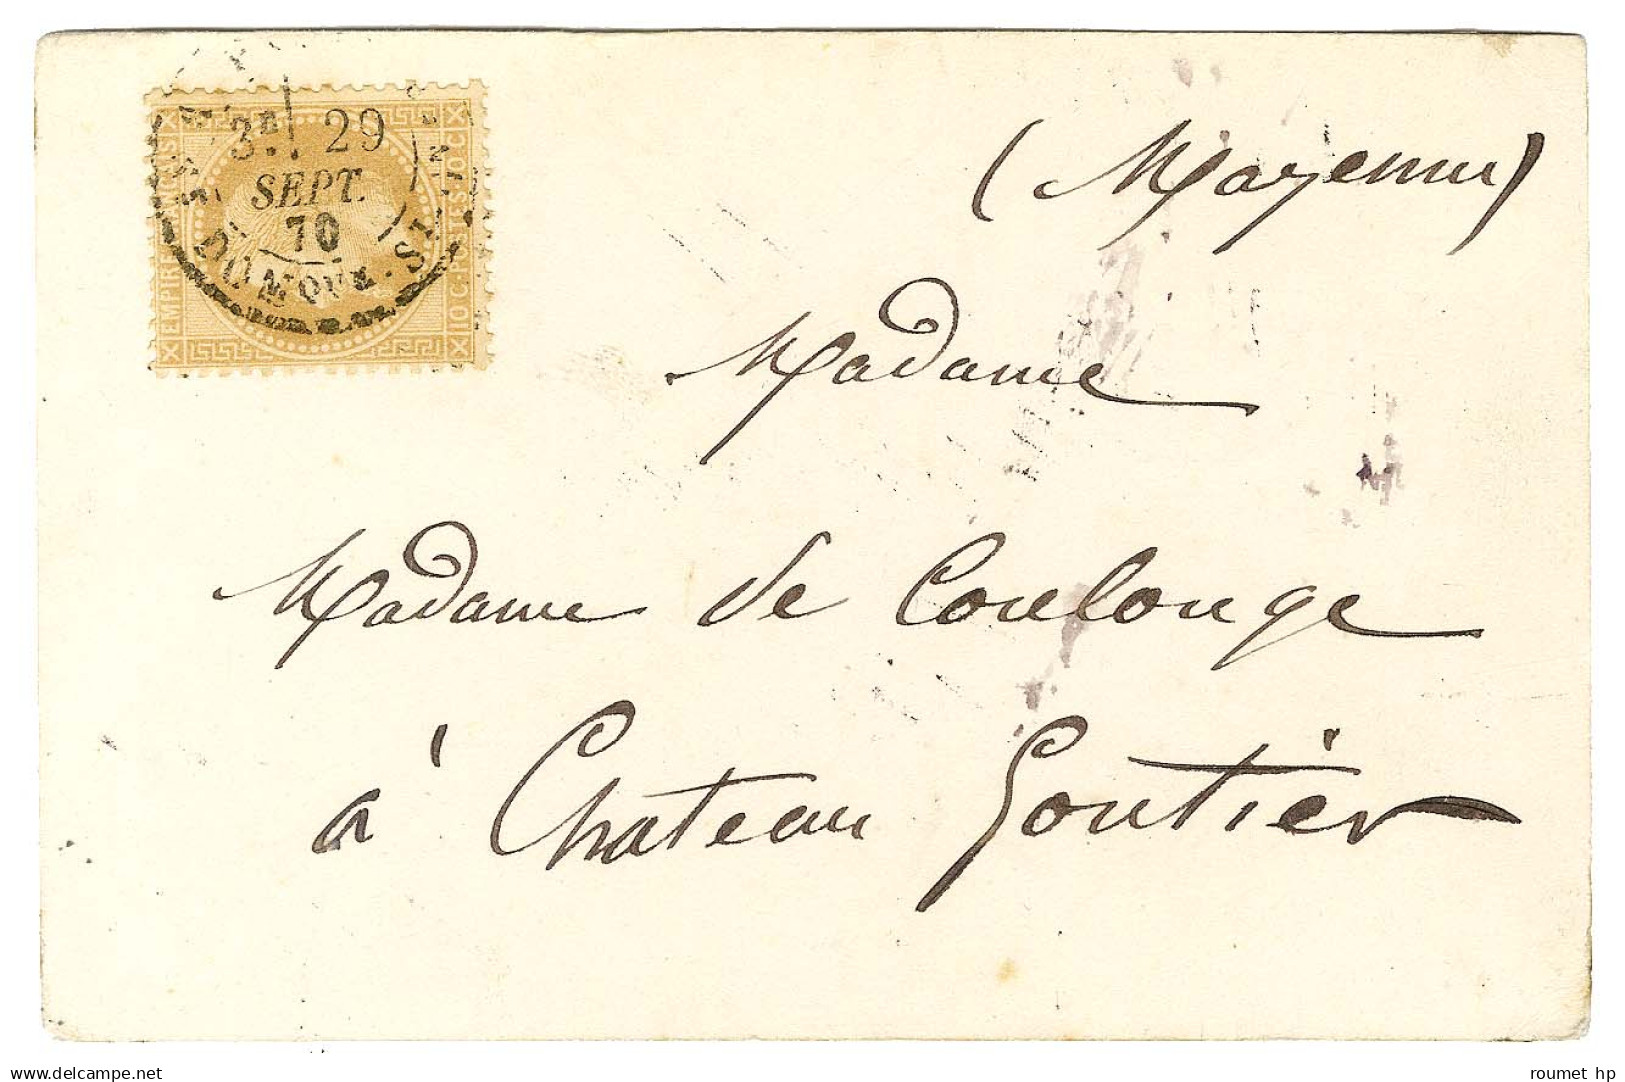 3E 29
SEPT.
70
EMPIRE FRANÇAIS
10 C. POSTES 10 C.
(Mayenne)
Madame
Madame de Coulonge
à Chateau Gontier
roumet hp
delcampe.net